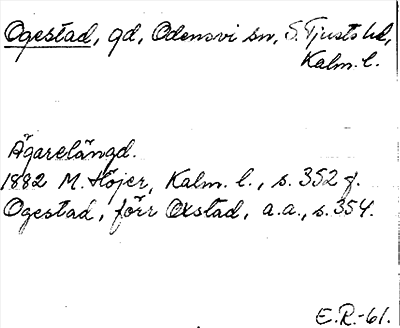 Ogestad, gd, Odensvi sn, S. Tjusts hd,
Kalm. l.
Ägarelängd.
1882 M. Höjer, Kalm. l., s. 352 f.
Ogestad, förr Oxstad, a.a., s. 354.
E.R.-61.